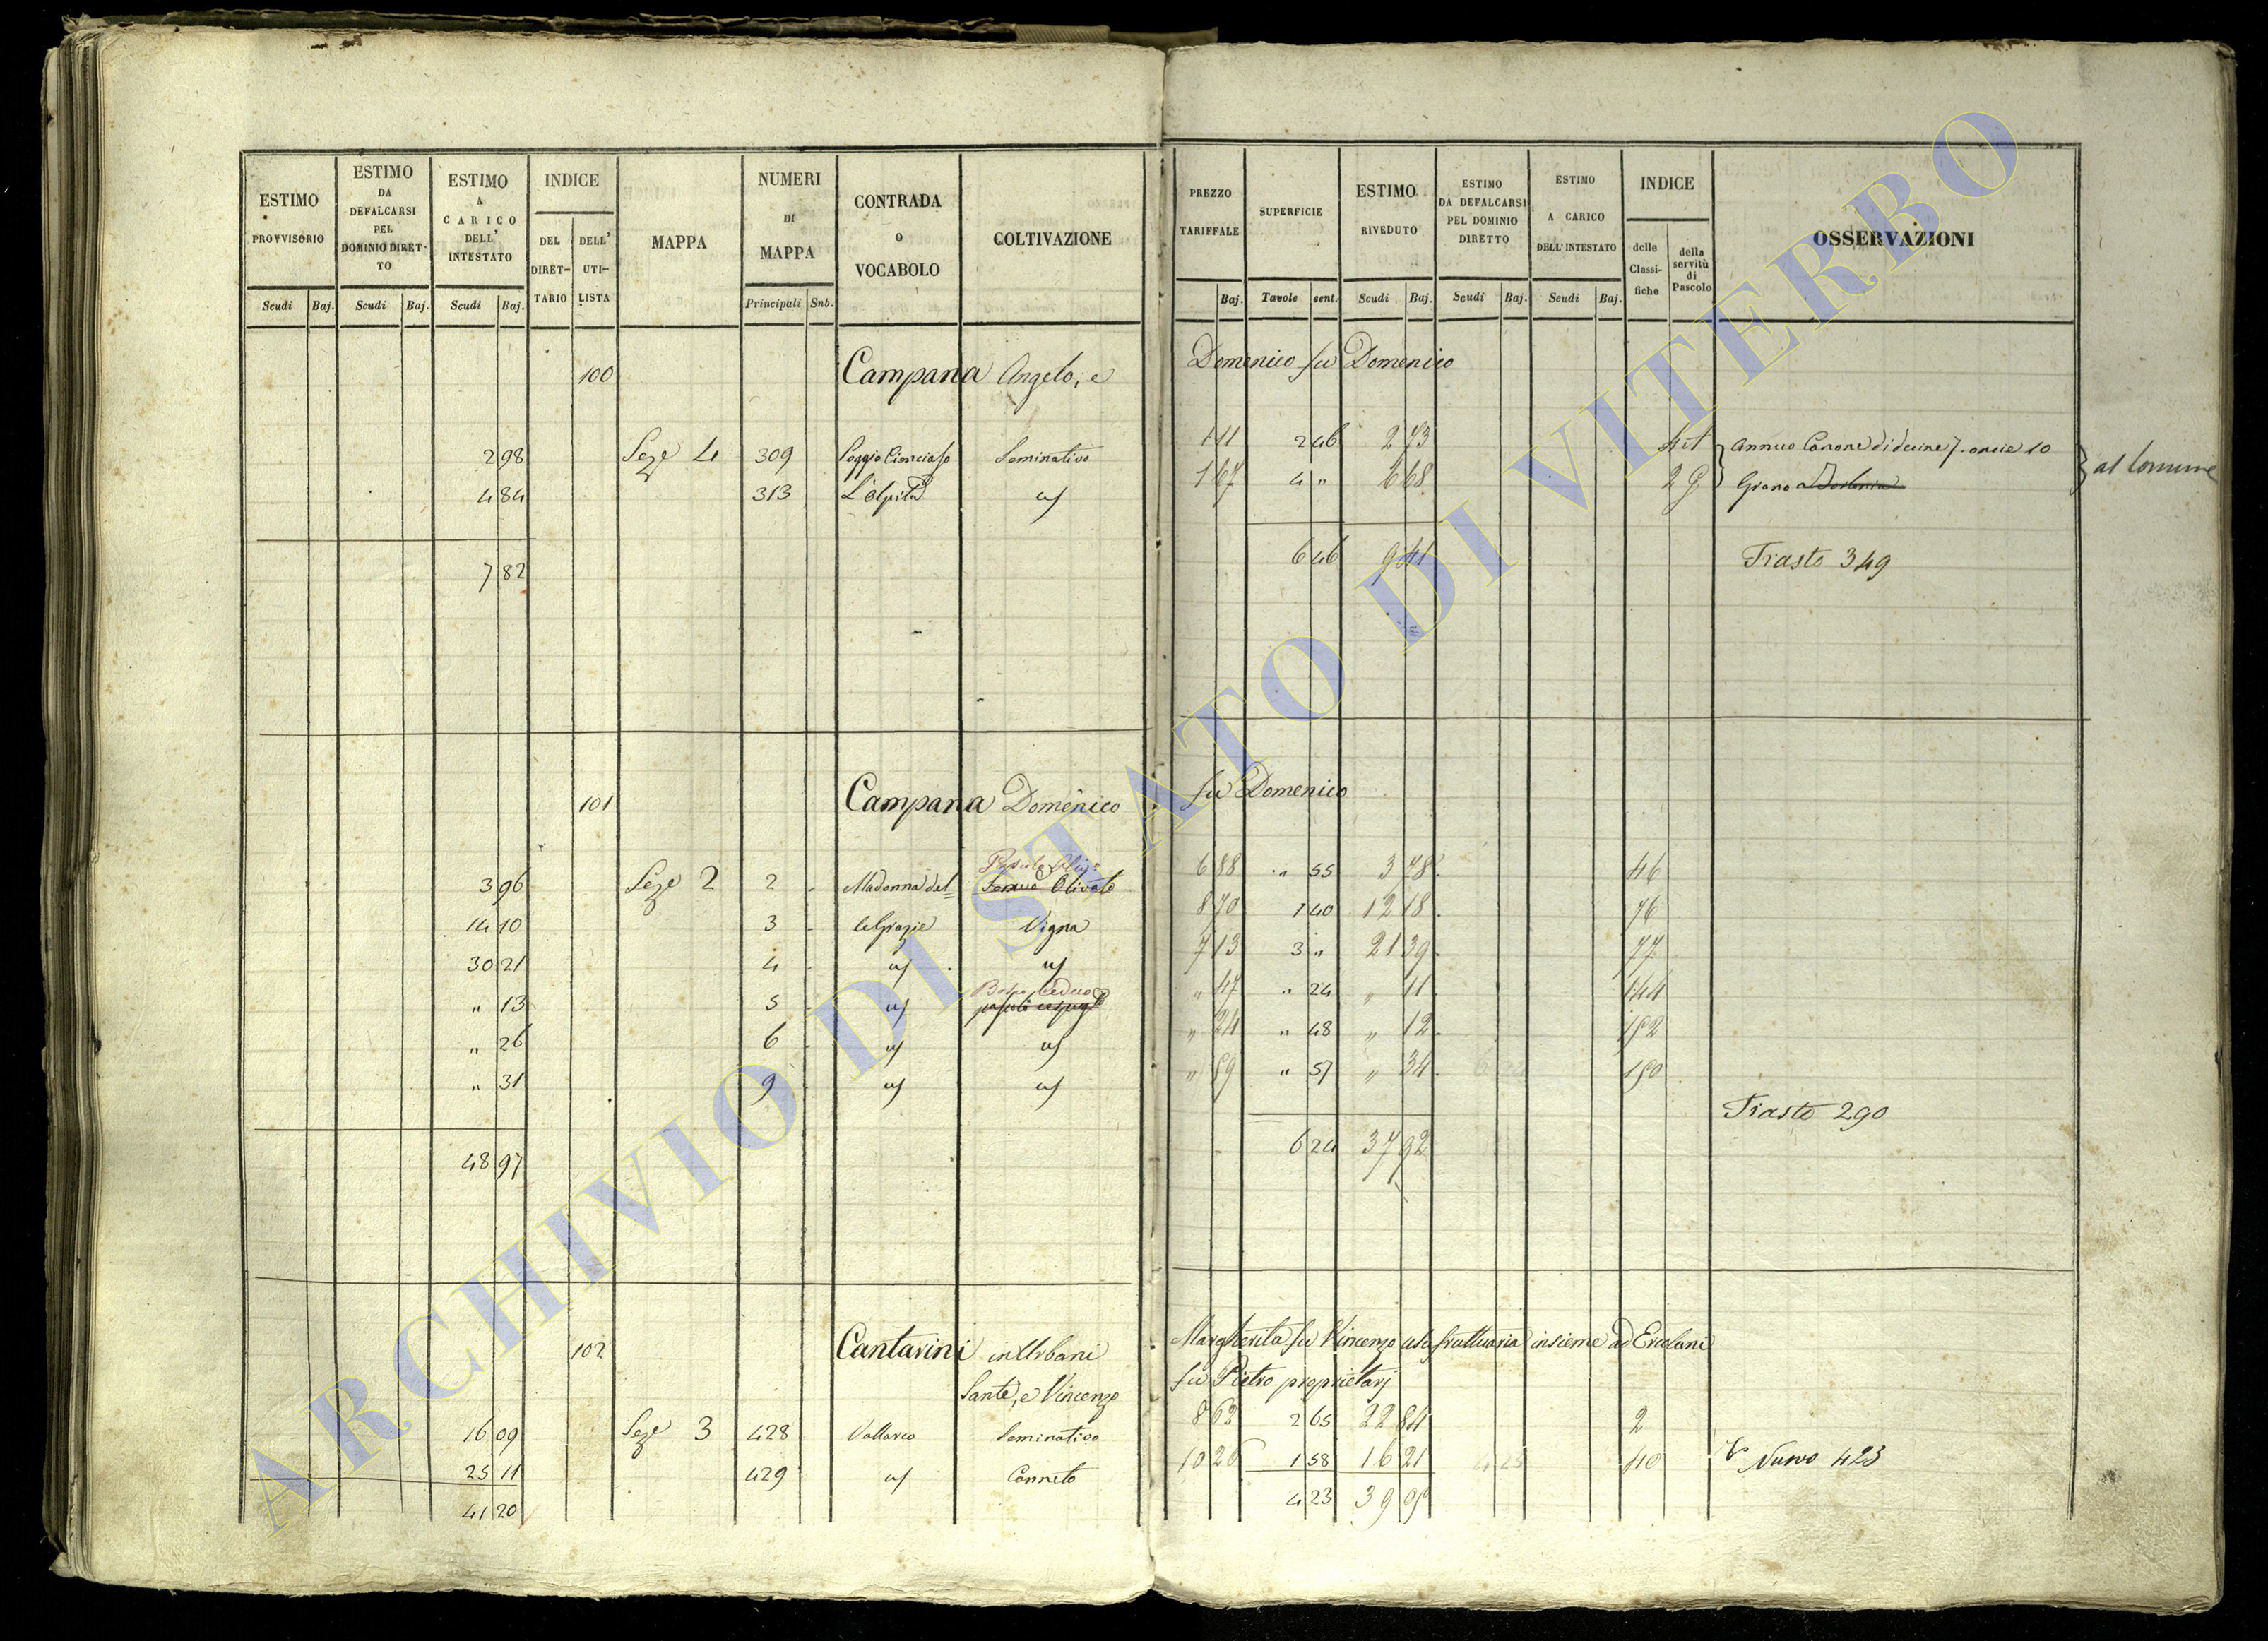 ESTIMO PROVVISORIO
ESTIMO DA DEFALCARSI PEL DOMINIO DIRETTO
ESTIMO A CARICO DELL' INTESTATO
INDICE
DEL DIRETTARIO
DELL' UTILISTA
MAPPA
NUMERI DI MAPPA
CONTRADA o VOCABOLO
COLTIVAZIONE
PREZZO TARIFFALE
SUPERFICIE
ESTIMO RIVEDUTO
ESTIMO DA DEFALCARSI PEL DOMINIO DIRETTO
ESTIMO A CARICO DELL' INTESTATO
INDICE
delle Classifiche
della servitù di Pascolo
OSSERVAZIONI
Scudi Baj. Scudi Baj. Scudi Baj. Principali Snb. Baj. Tavole cent. Scudi Baj. Scudi Baj. Scudi Baj.
100 Campana Angelo, e Domenico fu Domenico
2 98 Seze 4 309 Seminativo 1 11 2 46 2 73 Annuo Canone di decine 7. oncie 10
4 84 313 1 67 4 " 6 68 Grano al Comune
7 82 6 46 9 41 Trasto 349
101 Campana Domenico fu Domenico
3 96 Seze 2 2 Madonna del= Olivato 6 88 " 55 3 78 46
14 10 3 le Grazie Vigna 8 70 1 40 12 18 76
30 21 4 7 13 3 " 21 39 77
" 13 5 Bosco Ceduo " 47 " 24 " 11 144
" 26 6 " 24 " 48 " 12
" 31 9 " 57 " 34
Trasto 290
48 97 6 24 37 92
102 Cantarini in Urbani Margherita fu Vincenzo usofruttuaria insieme ad Ercolani
Sante, e Vincenzo fu Pietro proprietarj
16 09 Seze 3 428 Vallarco Seminativo 8 62 2 65 22 84 2
25 11 429 Canneto 10 26 1 58 16 21 40 Nuovo 423
41 20 4 23 39 05
ARCHIVIO DI STATO DI VITERBO